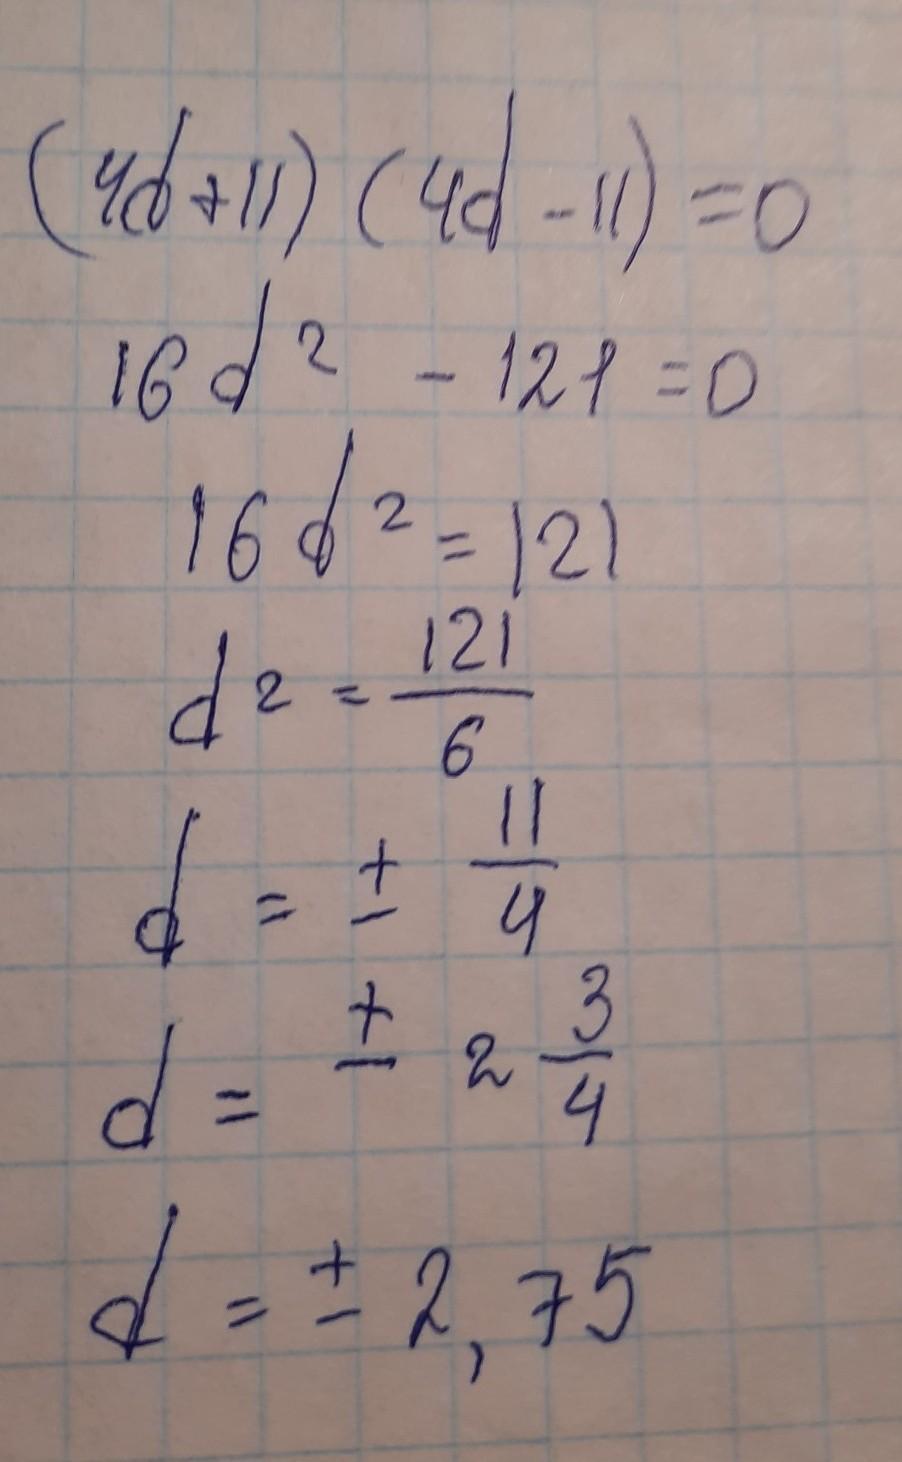 (4d+11) (4d-11)=0
16d² - 121=0
16d²=121
d²=121/6
d = ± 11/4
d = ± 2 3/4
d = ± 2,75